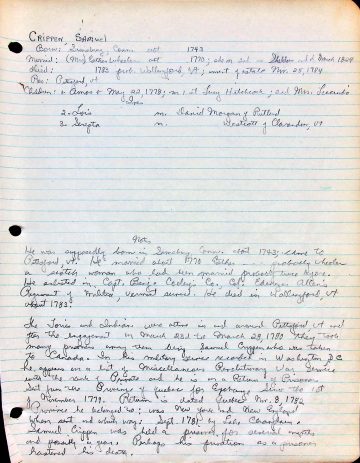 CRIPPEN, SAMUEL
Born: Simsbury, Conn. abt 1743
Married: (Mrs) Esther Wheeler abt 1770; 
Died: 1783 prob. Wallingford, Vt; invent of estate Nov. 25, 1784
Res: Pittsford, Vt
Children: 1. Amos b May 22, 1778; m. 1st Lucy Hitchcock; 2nd Mrs.
2. Lois m. Daniel Morgan of Rutland
3. m. of Clarendon, Vt
Notes
He was supposedly born in Simsbury Conn. abt 1743; came to
Pittsford, Vt. He married about 1770 Esther ... probably Wheeler
a Scotch woman who had been married previously
He enlisted in Capt. Benj. Cooley's Co., Col. Ebenezer Allen's
Regiment of Militia, Vermont service. He died in Wallingford, Vt
about 1783.
The Tories and Indians were often in and around Pittsford, Vt and
for the engagement on March 22nd to March 28, 1780 they took
many prisoners among them being Samuel Crippen who was taken
to Canada. In his military service recorded in Washington, D.C.
he appears on a list of Miscellaneous Revolutionary War Service
with the rank of Private and he is on a Return of Prisoners
in the Province of Quebec for Exchange since the 1st
November 1779. Return is dated Quebec Nov. 8, 1782
Province he belonged to; was New York and New England
When sent and which way: Sept. 1781 by Lake Champlain.
Samuel Crippen was held a prisoner for several months
and possibly a year. Perhaps his privations as a prisoner
hastened his death.